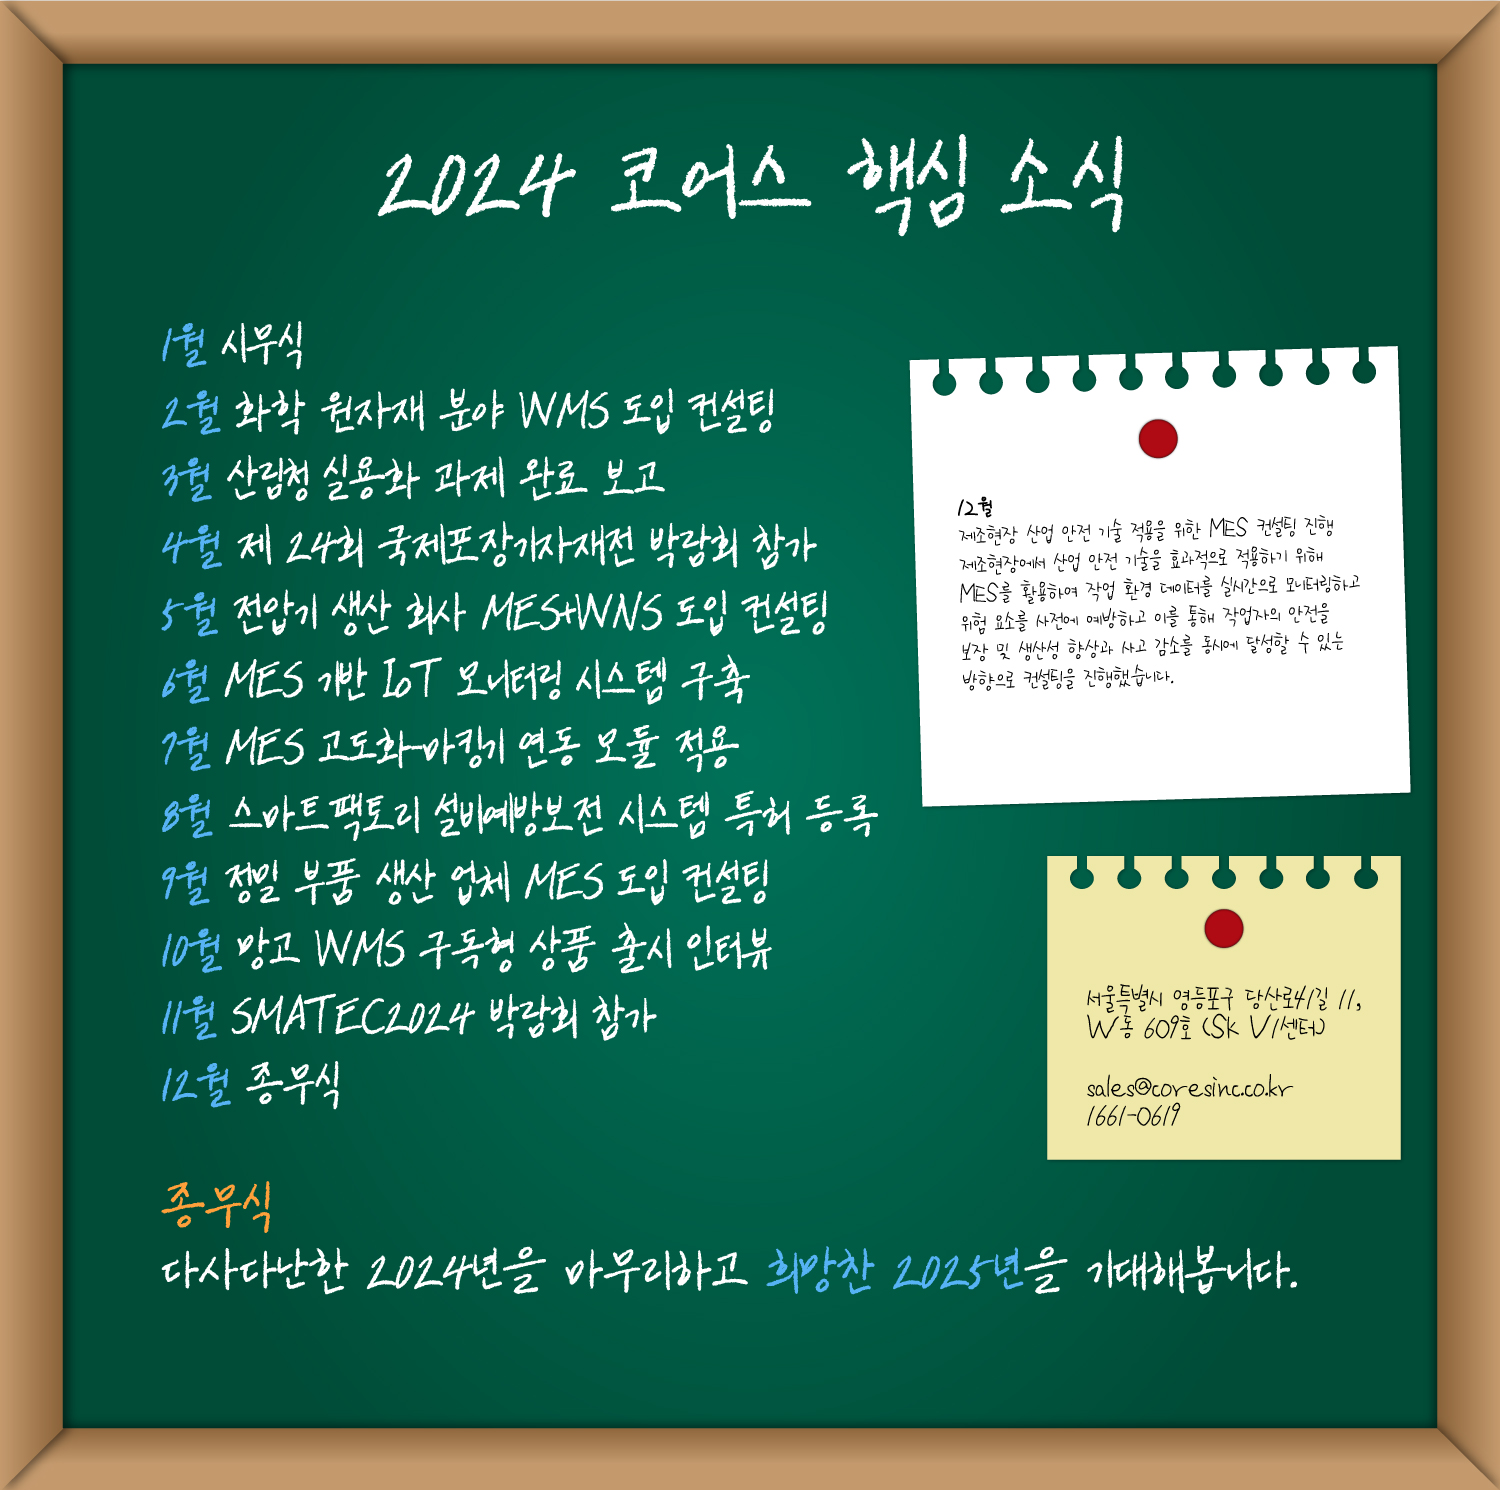 2024 코어스 핵심 소식
1월 시무식
2월 화학 원자재 분야 WMS 도입 컨설팅
3월 산림청 실용화 과제 완료 보고
4월 제 24회 국제포장기자재전 박람회 참가
5월 전압기 생산 회사 MES+WNS 도입 컨설팅
6월 MES 기반 IoT 모니터링 시스템 구축
7월 MES 고도화-마킹기 연동 모듈 적용
8월 스마트팩토리 설비예방보전 시스템 특허 등록
9월 정밀 부품 생산 업체 MES 도입 컨설팅
10월 망고 WMS 구독형 상품 출시 인터뷰
11월 SMATEC2024 박람회 참가
12월 종무식
12월
제조현장 산업 안전 기술 적용을 위한 MES 컨설팅 진행
제조현장에서 산업 안전 기술을 효과적으로 적용하기 위해
MES를 활용하여 작업 환경 데이터를 실시간으로 모니터링하고
위험 요소를 사전에 예방하고 이를 통해 작업자의 안전을
보장 및 생산성 향상과 사고 감소를 동시에 달성할 수 있는
방향으로 컨설팅을 진행했습니다.
서울특별시 영등포구 당산로41길 11,
W동 609호 (Sk V1센터)
sales@coresinc.co.kr
1661-0619
종무식
다사다난한 2024년을 마무리하고 희망찬 2025년을 기대해봅니다.